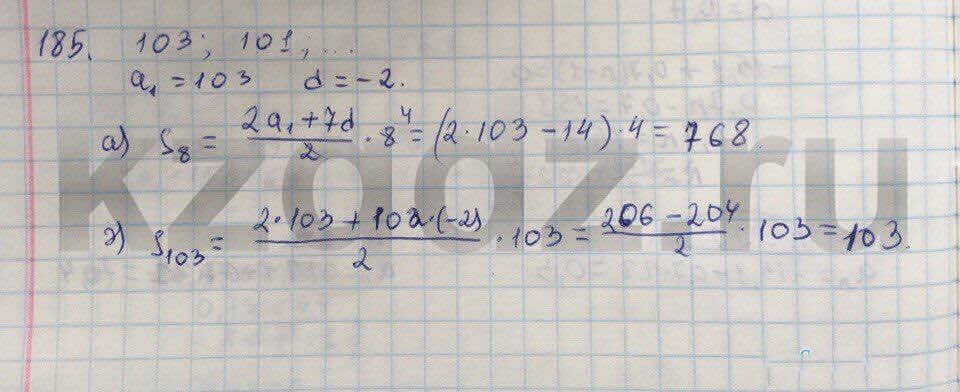 185. 103; 101; ...
a₁ = 103 d = -2.
а) S₈ = (2a₁ + 7d)/2 · 8⁴ = (2·103 - 14)·4 = 768.
г) S₁₀₃ = (2·103 + 102·(-2))/2 · 103 = (206 - 204)/2 · 103 = 103.
kzgdz.ru